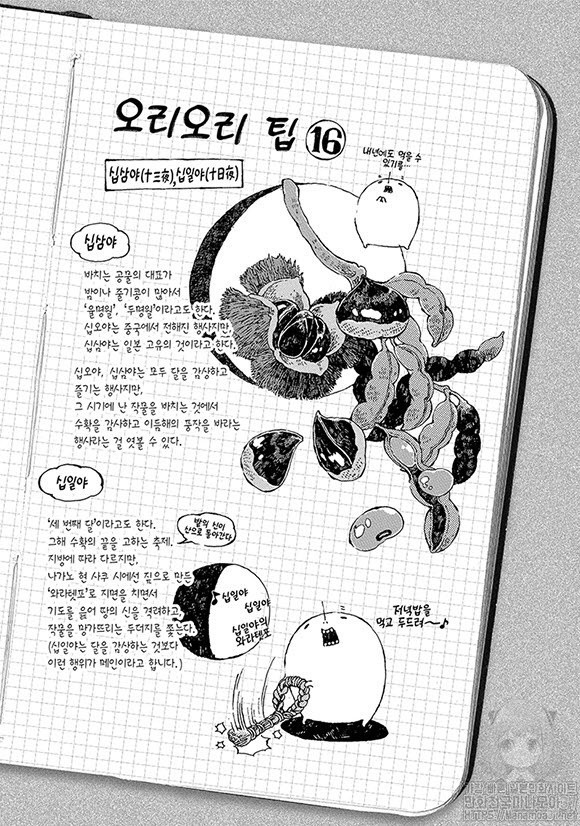 오리오리 팁 16
십삼야(十三夜), 십일야(十日夜)
내년에도 먹을 수
있기를...
십삼야
바치는 공물의 대표가
밤이나 줄기콩이 많아서
'율명월', '두명월'이라고도 한다.
십오야는 중국에서 전해진 행사지만,
십삼야는 일본 고유의 것이라고 한다.
십오야, 십삼야는 모두 달을 감상하고
즐기는 행사지만,
그 시기에 난 작물을 바치는 것에서
수확을 감사하고 이듬해의 풍작을 바라는
행사라는 걸 엿볼 수 있다.
십일야
'세 번째 달'이라고도 한다.
그해 수확의 끝을 고하는 축제.
밭의 신이
산으로 돌아간다
지방에 따라 다르지만,
나가노 현 사쿠 시에선 짚으로 만든
'와라텟포'로 지면을 치면서
기도를 읊어 땅의 신을 격려하고,
작물을 망가뜨리는 두더지를 쫓는다.
(십일야는 달을 감상하는 것보다
이런 행위가 메인이라고 합니다.)
♪ 십일야
십일야
십일야의
와라텟포
저녁밥을
먹고 두드려~♪